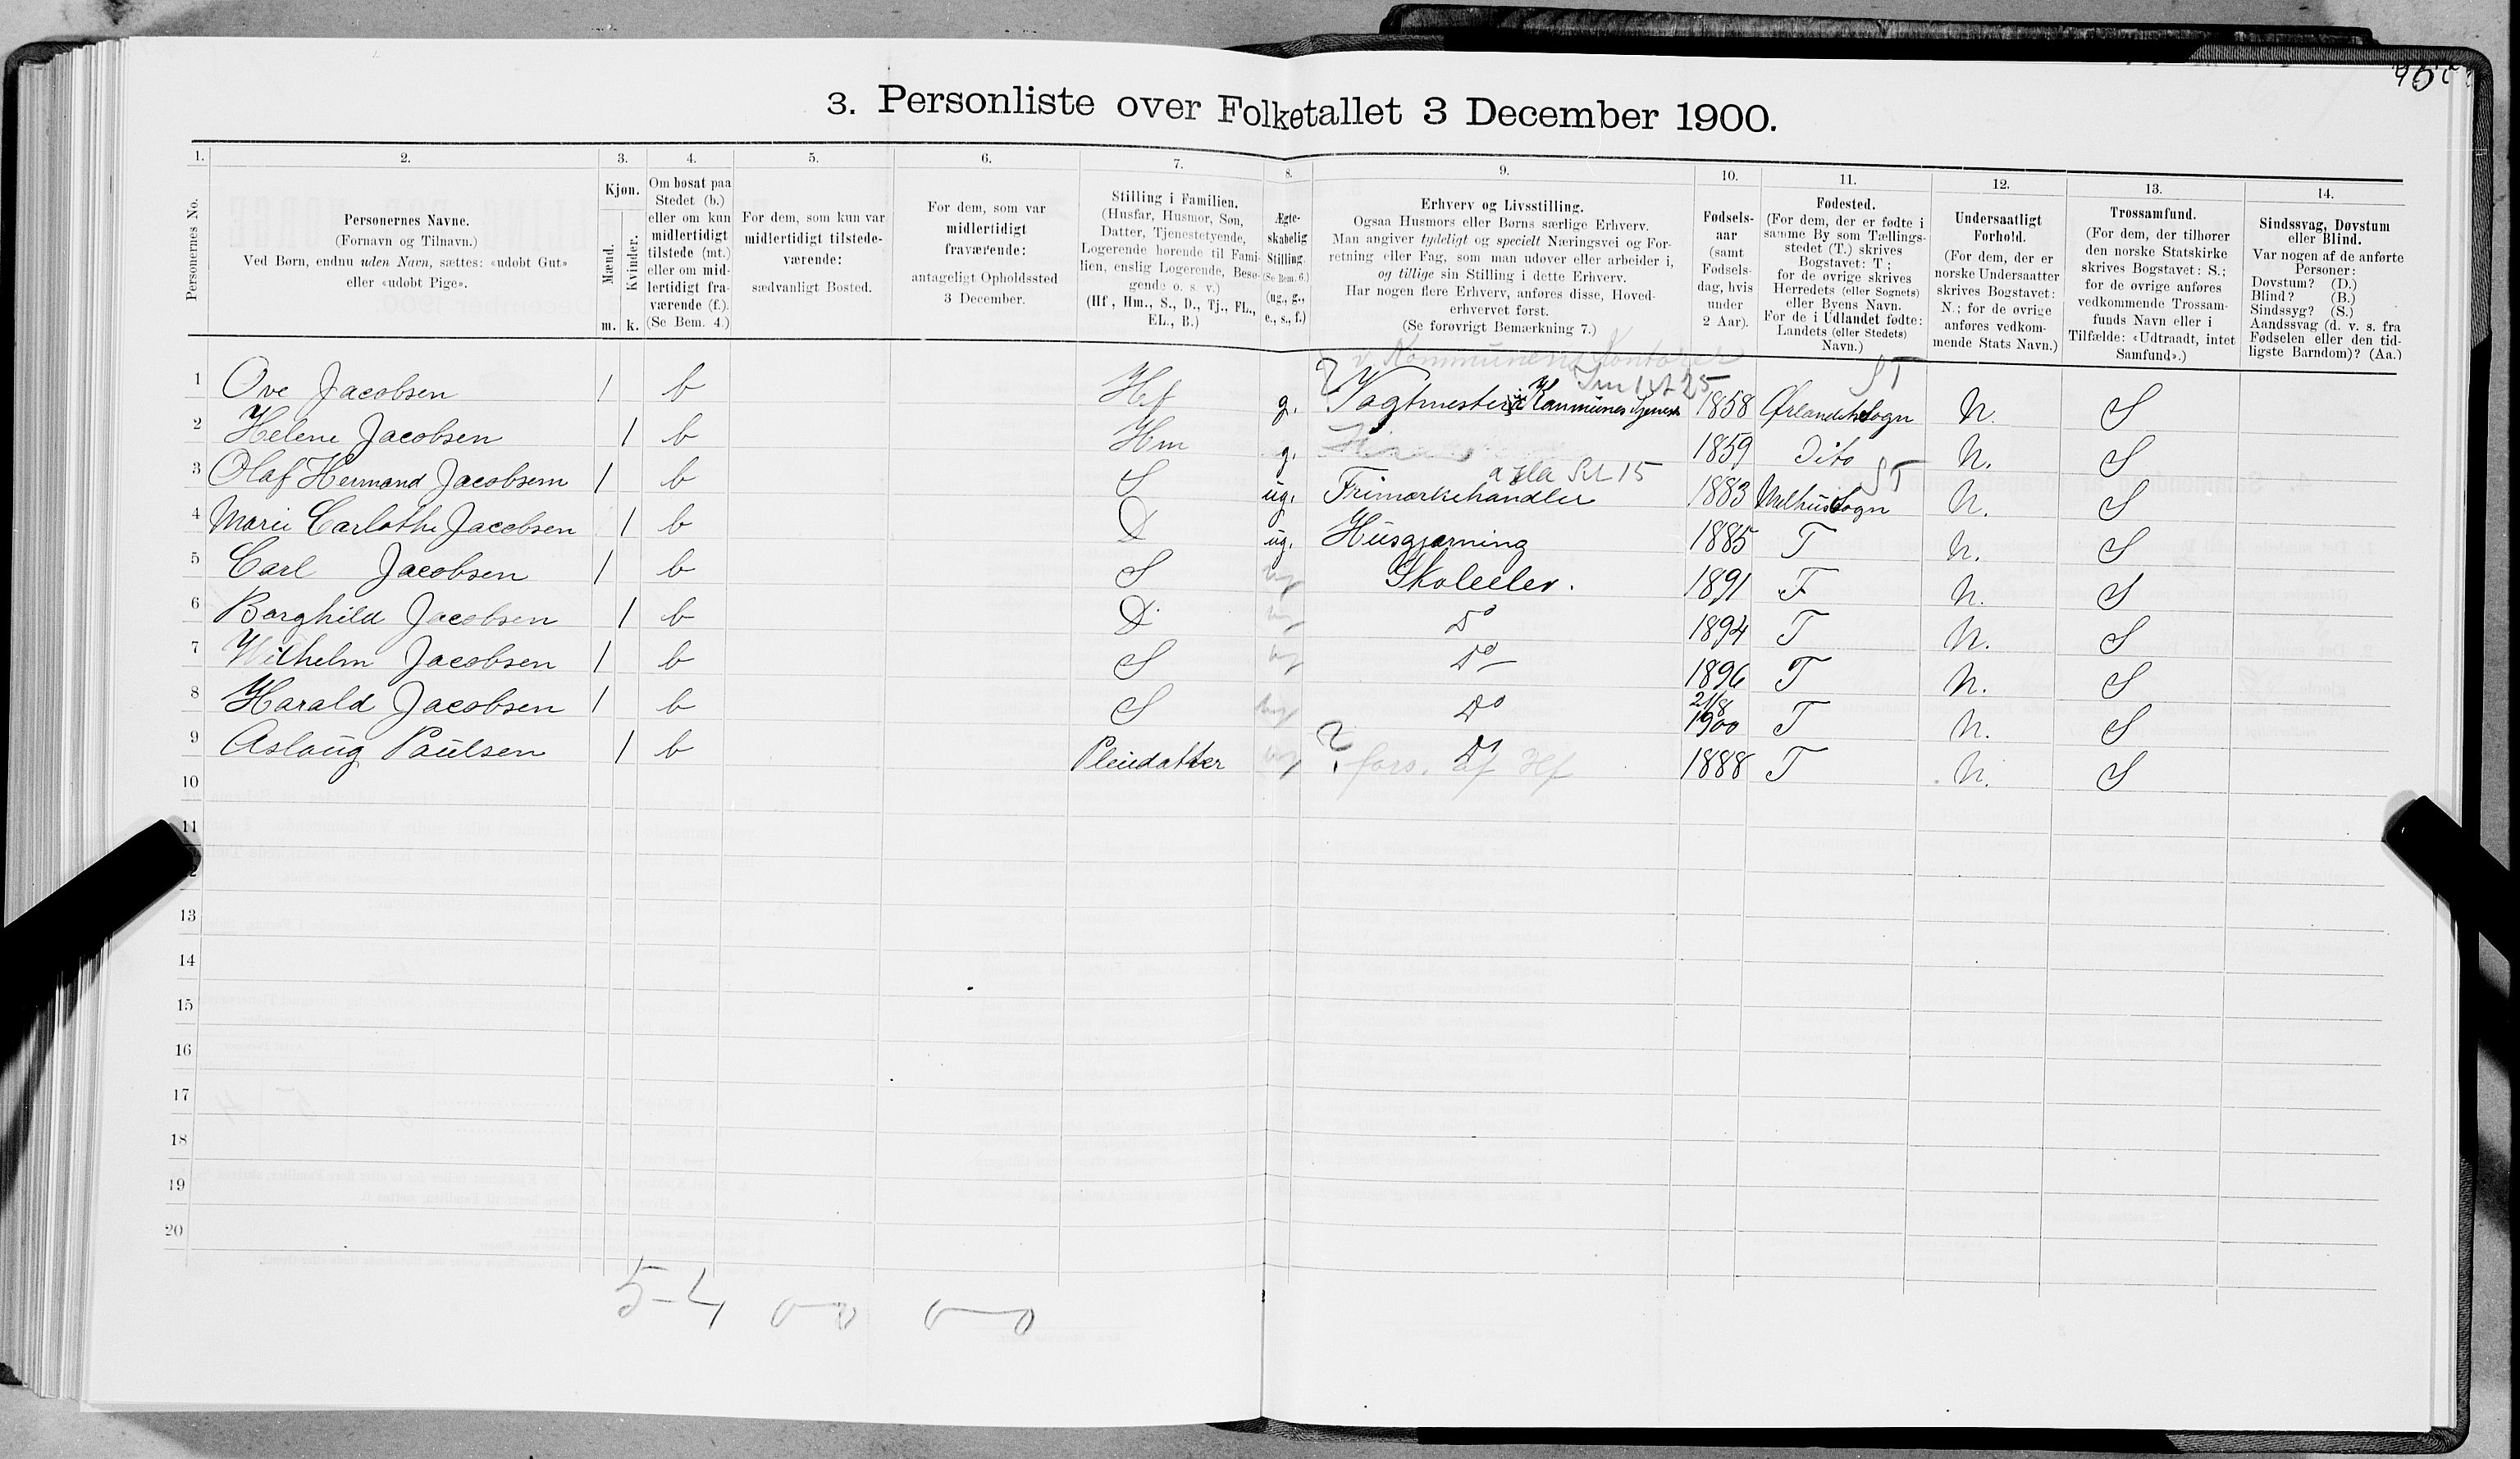 3. Personliste over Folketallet 3 December 1900.
1. 2. 3. 4. 5. 6. 7. 8. 9. 10. 11. 12. 13. 14.
Personernes No.
Personernes Navne.
(Fornavn og Tilnavn.)
Ved Børn, endnu uden Navn, sættes: «udøbt Gut»
eller «udøbt Pige».
Kjøn.
Mænd.
Kvinder.
m. k.
Om bosat paa
Stedet (b.)
eller om kun
midlertidigt
tilstede (mt.)
eller om mid-
lertidigt fra-
værende (f.).
(Se Bem. 4.)
For dem, som kun var
midlertidigt tilstede-
værende:
sædvanligt Bosted.
For dem, som var
midlertidigt
fraværende:
antageligt Opholdssted
3 December.
Stilling i Familien.
(Husfar, Husmor, Søn,
Datter, Tjenestetyende,
Logerende hørende til Fami-
lien, enslig Logerende, Besø-
gende o. s. v.)
(Hf., Hm., S., D., Tj., FL.,
EL., B.)
Ægte-
skabelig
Stilling.
(Se Bem. 6.)
(ug., g.,
e., s., f.)
Erhverv og Livsstilling.
Ogsaa Husmors eller Børns særlige Erhverv.
Man angiver tydeligt og specielt Næringsvei og For-
retning eller Fag, som man udøver eller arbeider i,
og tillige sin Stilling i dette Erhverv.
Har nogen flere Erhverv, anføres disse, Hoved-
erhvervet først.
(Se forøvrigt Bemærkning 7.)
Fødsels-
aar
(samt
Fødsels-
dag, hvis
under
2 Aar).
Fødested.
(For dem, der er fødte i
samme By som Tællings-
stedet (T.) skrives
Bogstavet: T;
for de øvrige skrives
Herredets (eller Sognets)
eller Byens Navn.
For de i Udlandet fødte:
Landets (eller Stedets)
Navn.)
Undersaatligt
Forhold.
(For dem, der er
norske Undersaatter
skrives Bogstavet:
N.; for de øvrige
anføres vedkom-
mende Stats Navn.)
Trossamfund.
(For dem, der tilhører
den norske Statskirke
skrives Bogstavet: S.;
for de øvrige anføres
vedkommende Trossam-
funds Navn eller i
Tilfælde: «Udtraadt, intet
Samfund».)
Sindssvag, Døvstum
eller Blind.
Var nogen af de anførte
Personer:
Døvstum? (D.)
Blind? (B.)
Sindssyg? (S.)
Aandssvag (d. v. s. fra
Fødselen eller den tid-
ligste Barndom)? (Aa.)
v. Kommunens Kontorer
ST
1 Ove Jacobsen 1 b Hf g. Vagtmester i Kommunes tjeneste 1858 Ørlandets Sogn N. S
2 Helene Jacobsen 1 b Hm g. 1859 Dito N. S
ST
3 Olaf Hermand Jacobsen 1 b S ug. Frimærkehandler 1883 Melhus Sogn N. S
4 Marie Carlothe Jacobsen 1 b D ug. Husgjærning 1885 T N. S
5 Carl Jacobsen 1 b S ug Skoleelev. 1891 T N. S
6 Borghild Jacobsen 1 b D ug Do 1894 T N. S
7 Wilhelm Jacobsen 1 b S ug Do 1896 T N. S
8 Harald Jacobsen 1 b S ug Do 21/8 1900 T N. S
9 Aslaug Paulsen 1 b Pleiedatter ug ? Do 1888 T N. S
fors. af Hf
10
11
13
14
15
16
17
18
19
20
5-4 0-0 0-0